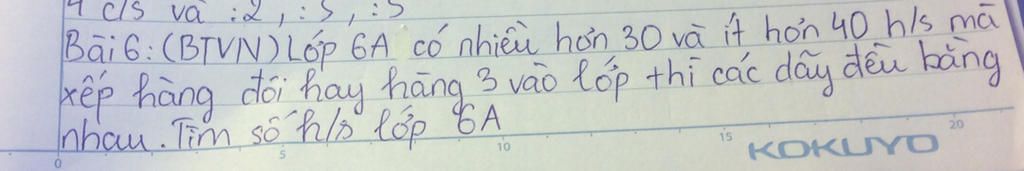 4 c/s và :2, :5, :3
Bài 6: (BTVN) Lớp 6A có nhiều hơn 30 và ít hơn 40 h/s mà
xếp hàng đôi hay hàng 3 vào lớp thì các dãy đều bằng
nhau. Tìm số h/s lớp 6A
0 5 10 15 20
KOKUYO